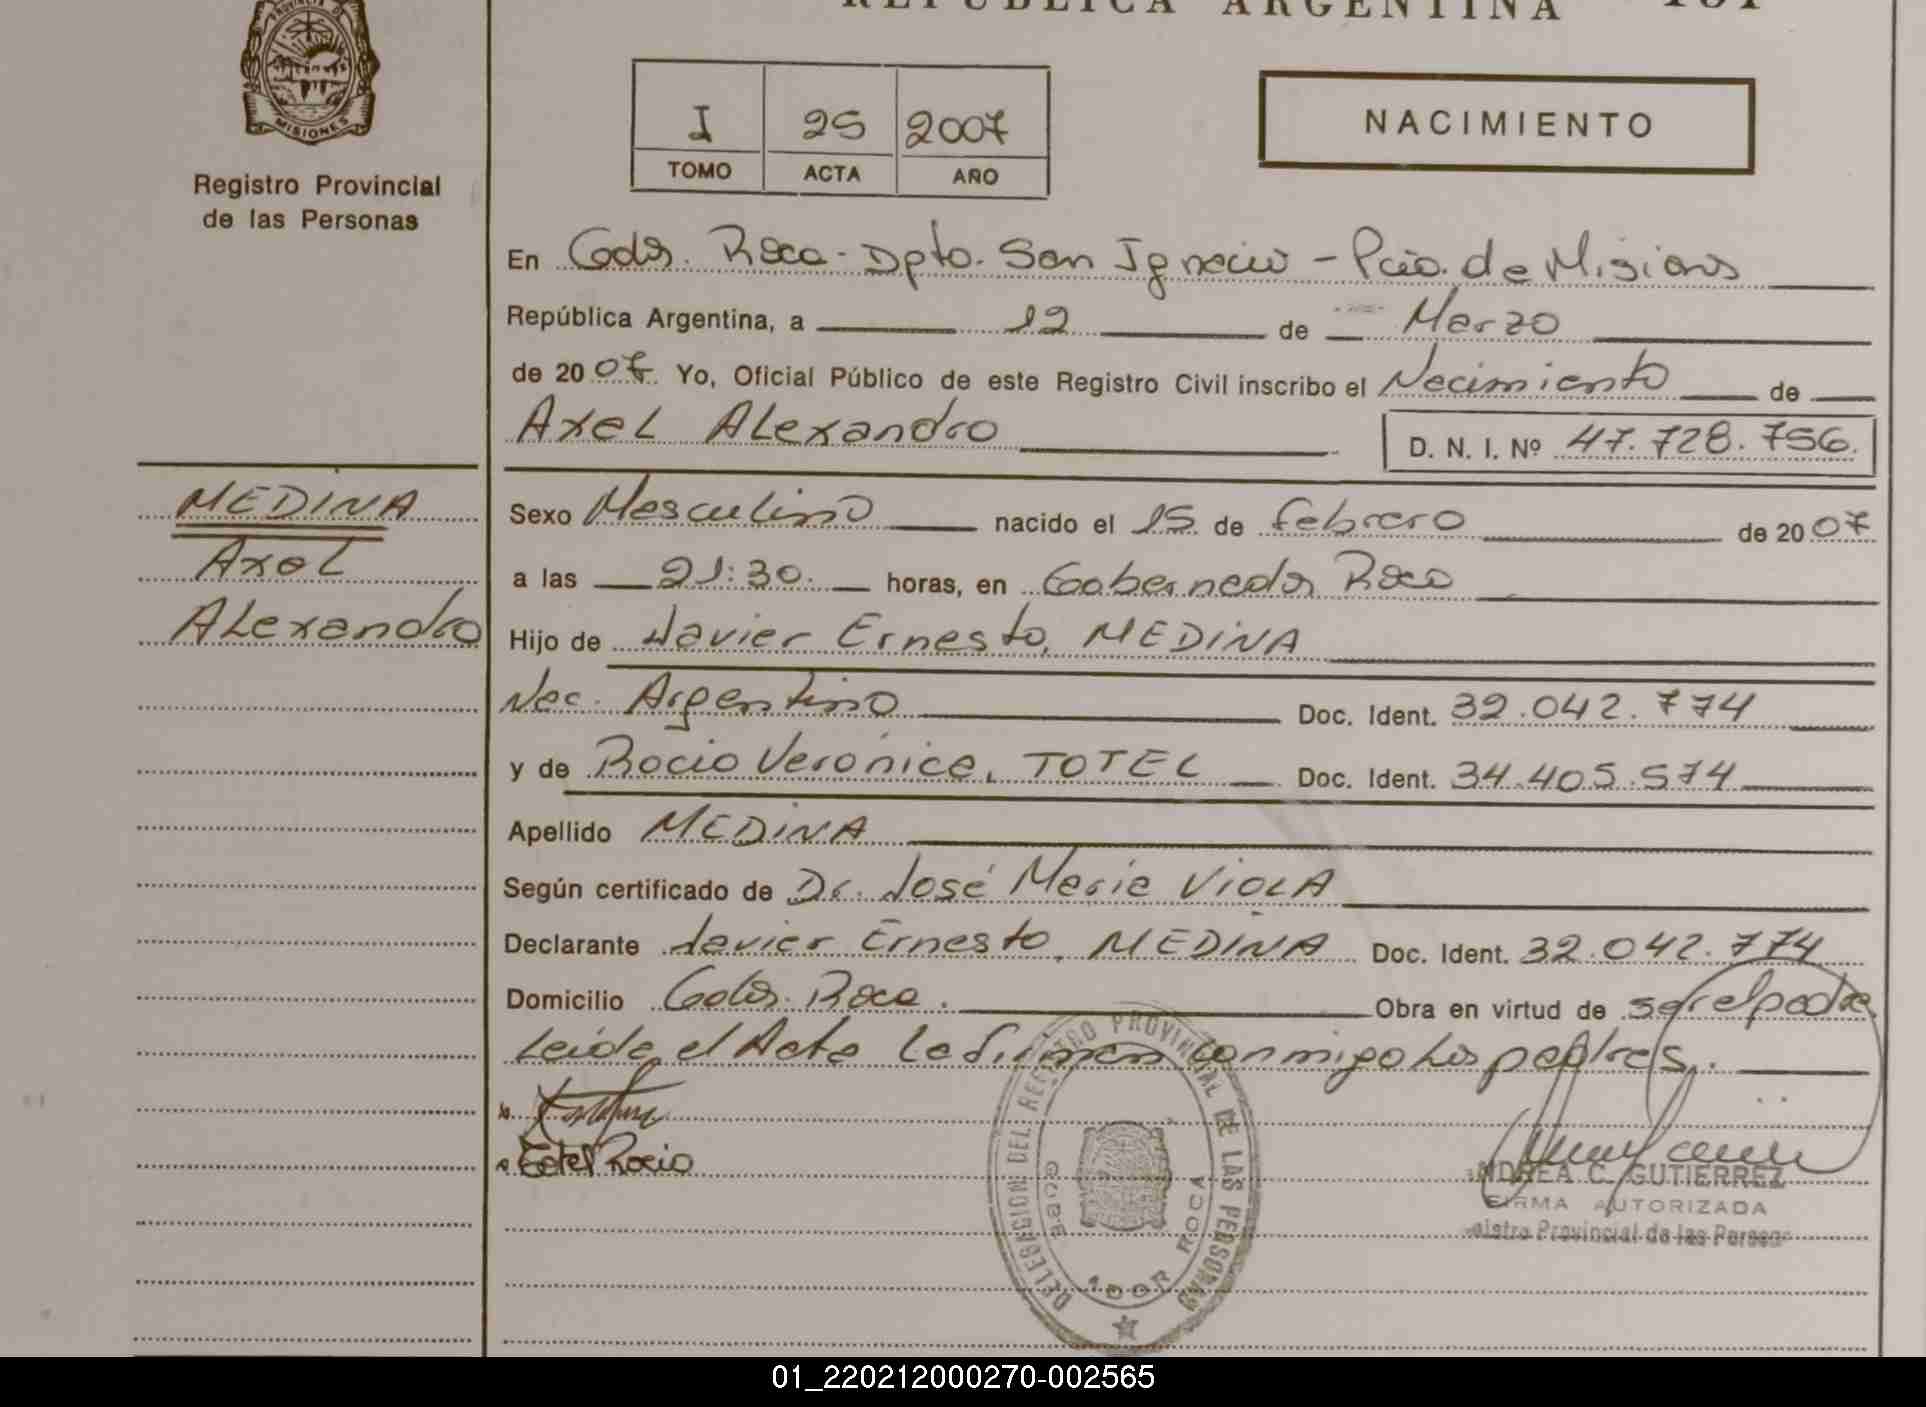 REPUBLICA ARGENTINA
PROVINCIA D
MISIONES
Registro Provincial
de las Personas
I 25 2007
TOMO ACTA AÑO
NACIMIENTO
En Gdor. Roca - Dpto. San Ignacio - Pcia. de Misiones
República Argentina, a 12 de Marzo
de 2007. Yo, Oficial Público de este Registro Civil inscribo el Nacimiento de
Axel Alexandro D. N. I. Nº 47.728.756.
MEDINA
Axel
Alexandro
Sexo Masculino nacido el 15 de febrero de 2007
a las 21:30. horas, en Gobernador Roca
Hijo de Javier Ernesto, MEDINA
Nac. Argentino Doc. Ident. 32.042.774
y de Rocio Veronica, TOTEL Doc. Ident. 34.405.574
Apellido MEDINA
Según certificado de Dr. José Maria VIOLA
Declarante Javier Ernesto, MEDINA Doc. Ident. 32.042.774
Domicilio Gdor. Roca. Obra en virtud de ser el padre
Leida el Acta la firman conmigo los padres.
Totel Rocio
DELEGACION DEL REGISTRO PROVINCIAL DE LAS PERSONAS
GOBE NADOR ROCA
ANDREA C. GUTIERREZ
FIRMA AUTORIZADA
gistro Provincial de las Person
01_220212000270-002565